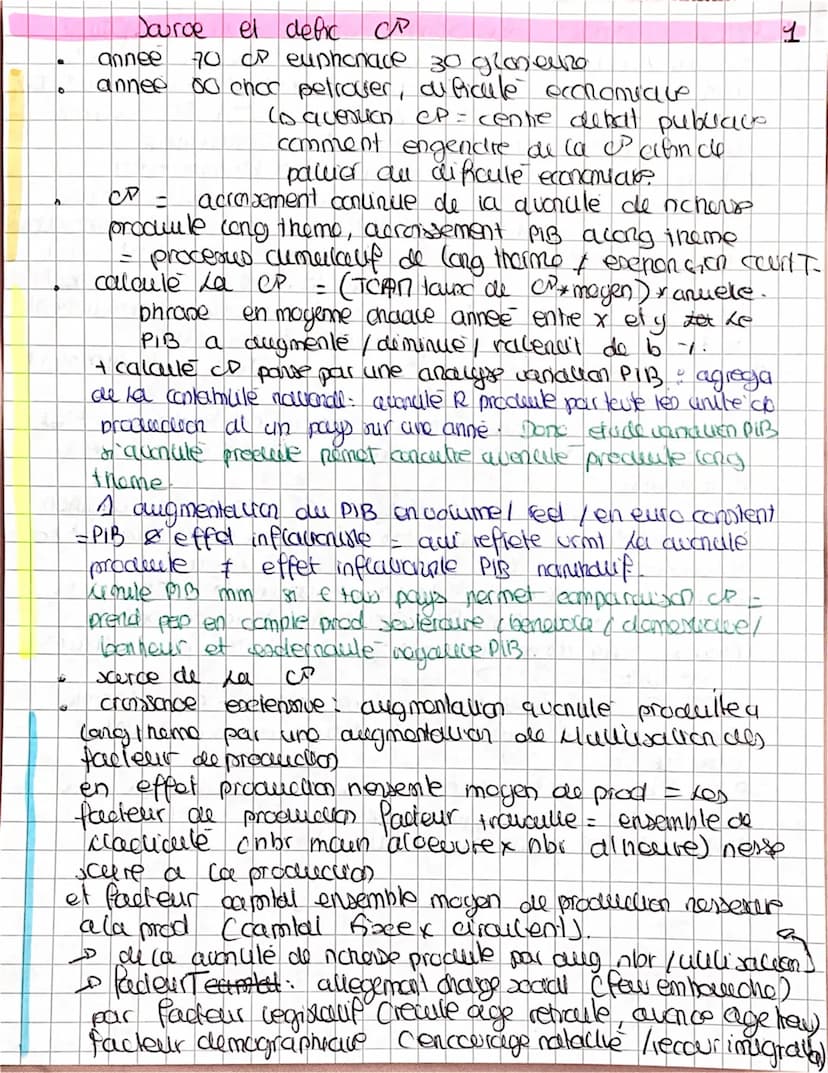 Source et defic CP 1
• année 70 CP euphorace 30 glorieuse
• année 80 choc petrolier, dificulté economique
question CP = centre debat publique
comment engendre de la CP afin de
palier au dificulté economique?
• CP = acroisement continue de la quantité de richesse
produite long theme, accroissement PIB a long theme
= processus cumulatif de long therme ≠ expension court T.
• calculé La CP = (TCAM taux de CP * moyen) * anuele.
phrase en moyenne chaque année entre x et y le
PIB a augmenté / diminué / ralentit de b %.
+ calculé CP passe par une analyse variation PIB : agrega
de la contabilité national : quantité R produite par toute les unité de
production d'un pays sur une anné. Donc etude variation PIB
quantité produite permet quantité produite long
theme.
augmentation du PIB en volume / reel / en euro constent
= PIB effet inflationiste = qui reflete vrmt la quantité
produite ≠ effet inflationiste PIB
PIB mm si pays permet comparaison CP =
prend pas en compte prod (benevole / domestique /
bonheur et PIB.
• source de La CP
• croissance extensive : augmentation quantité produite a
long theme par une augmentation de l'utilisation des
facteur de production
en effet production nessesite moyen de prod = Les
facteur de production facteur travaille = ensemble de
(nbr main d'oeuvre x nbr d'heure)
a la production
et facteur capital ensemble moyen de production
a la prod (capital fixe x circulent).
→ de la quantité de richesse produite par aug nbr / utilisation
→ facteur T : allegement charge social
par facteur legislatif (recule age retraite, avance age
facteur demographique (encourage natalité /